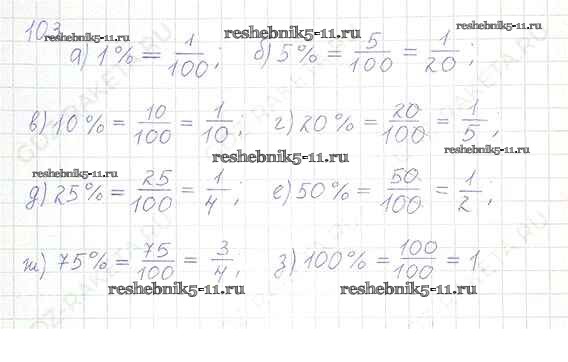 103
reshebnik5-11.ru reshebnik5-11.ru reshebnik5-11.ru
а) 1% = 1/100; б) 5% = 5/100 = 1/20;
в) 10% = 10/100 = 1/10; г) 20% = 20/100 = 1/5;
reshebnik5-11.ru reshebnik5-11.ru
reshebnik5-11.ru
д) 25% = 25/100 = 1/4; е) 50% = 50/100 = 1/2;
ж) 75% = 75/100 = 3/4; з) 100% = 100/100 = 1
reshebnik5-11.ru reshebnik5-11.ru